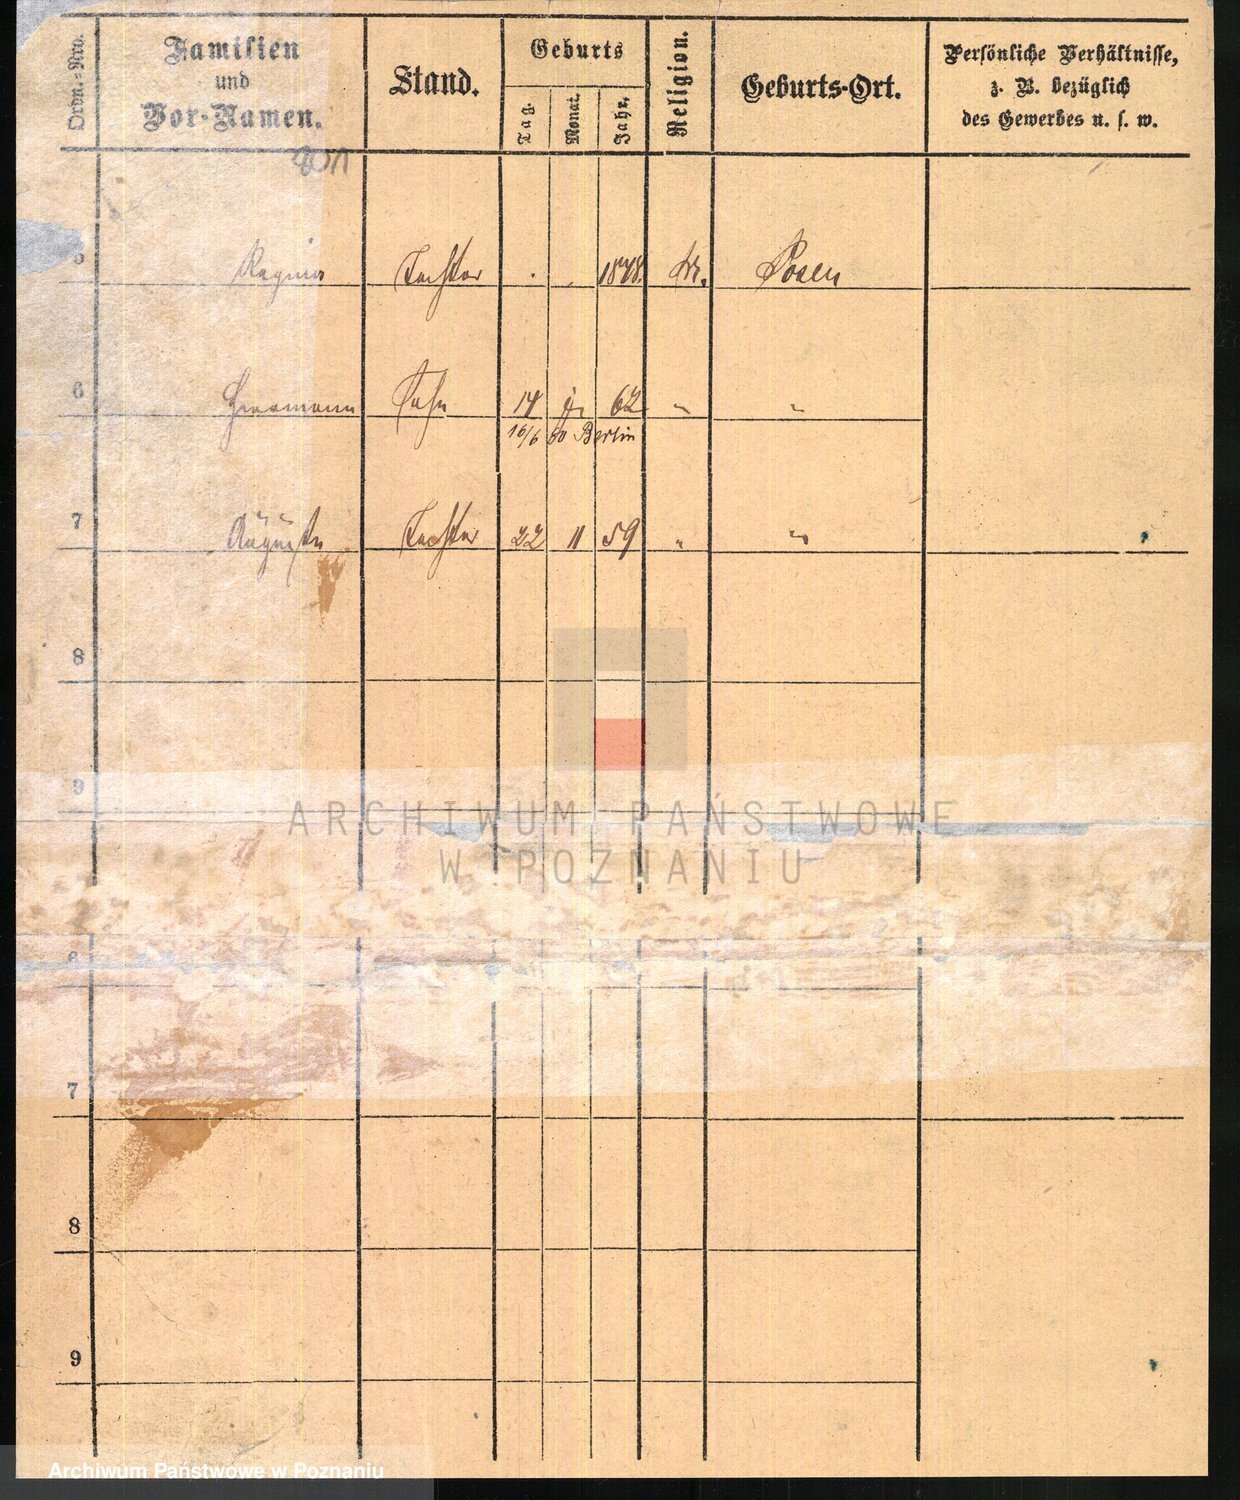 Ordn.-Nro.
Familien
und
Vor-Namen.
Stand.
Geburts
Tag.
Monat.
Jahr.
Religion.
Geburts-Ort.
Persönliche Verhältnisse,
z. B. bezüglich
des Gewerbes u. s. w.
5 Regina Tochter . . 1848. Posen
6 Herrmann Sohn 14 62 " "
16/6 60 Berlin
7 Auguste Tochter 22 11 59 " "
8
9
ARCHIWUM PAŃSTWOWE
W POZNANIU
6
7
8
9
Archiwum Państwowe w Poznaniu